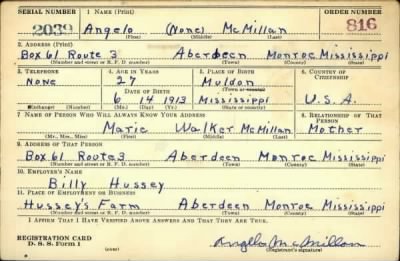 SERIAL NUMBER 1. NAME (Print) ORDER NUMBER
2039 Angelo (None) McMillan 816
(First) (Middle) (Last)
2. ADDRESS (Print)
Box 61 Route 3 Aberdeen Monroe Mississippi
(Number and street or R. F. D. number) (Town) (County) (State)
3. TELEPHONE 4. AGE IN YEARS 5. PLACE OF BIRTH 6. COUNTRY OF CITIZENSHIP
None 27 Muldon
DATE OF BIRTH (Town or county)
6 14 1913 Mississippi U.S.A.
(Exchange) (Number) (Mo.) (Day) (Yr.) (State or country)
7. NAME OF PERSON WHO WILL ALWAYS KNOW YOUR ADDRESS 8. RELATIONSHIP OF THAT PERSON
Marie Walker McMillan Mother
(Mr., Mrs., Miss) (First) (Middle) (Last)
9. ADDRESS OF THAT PERSON
Box 61 Route 3 Aberdeen Monroe Mississippi
(Number and street or R. F. D. number) (Town) (County) (State)
10. EMPLOYER'S NAME
Billy Hussey
11. PLACE OF EMPLOYMENT OR BUSINESS
Hussey's Farm Aberdeen Monroe Mississippi
(Number and street or R. F. D. number) (Town) (County) (State)
I AFFIRM THAT I HAVE VERIFIED ABOVE ANSWERS AND THAT THEY ARE TRUE.
REGISTRATION CARD
D. S. S. Form 1 (over) Angello McMillan
(Registrant's signature)